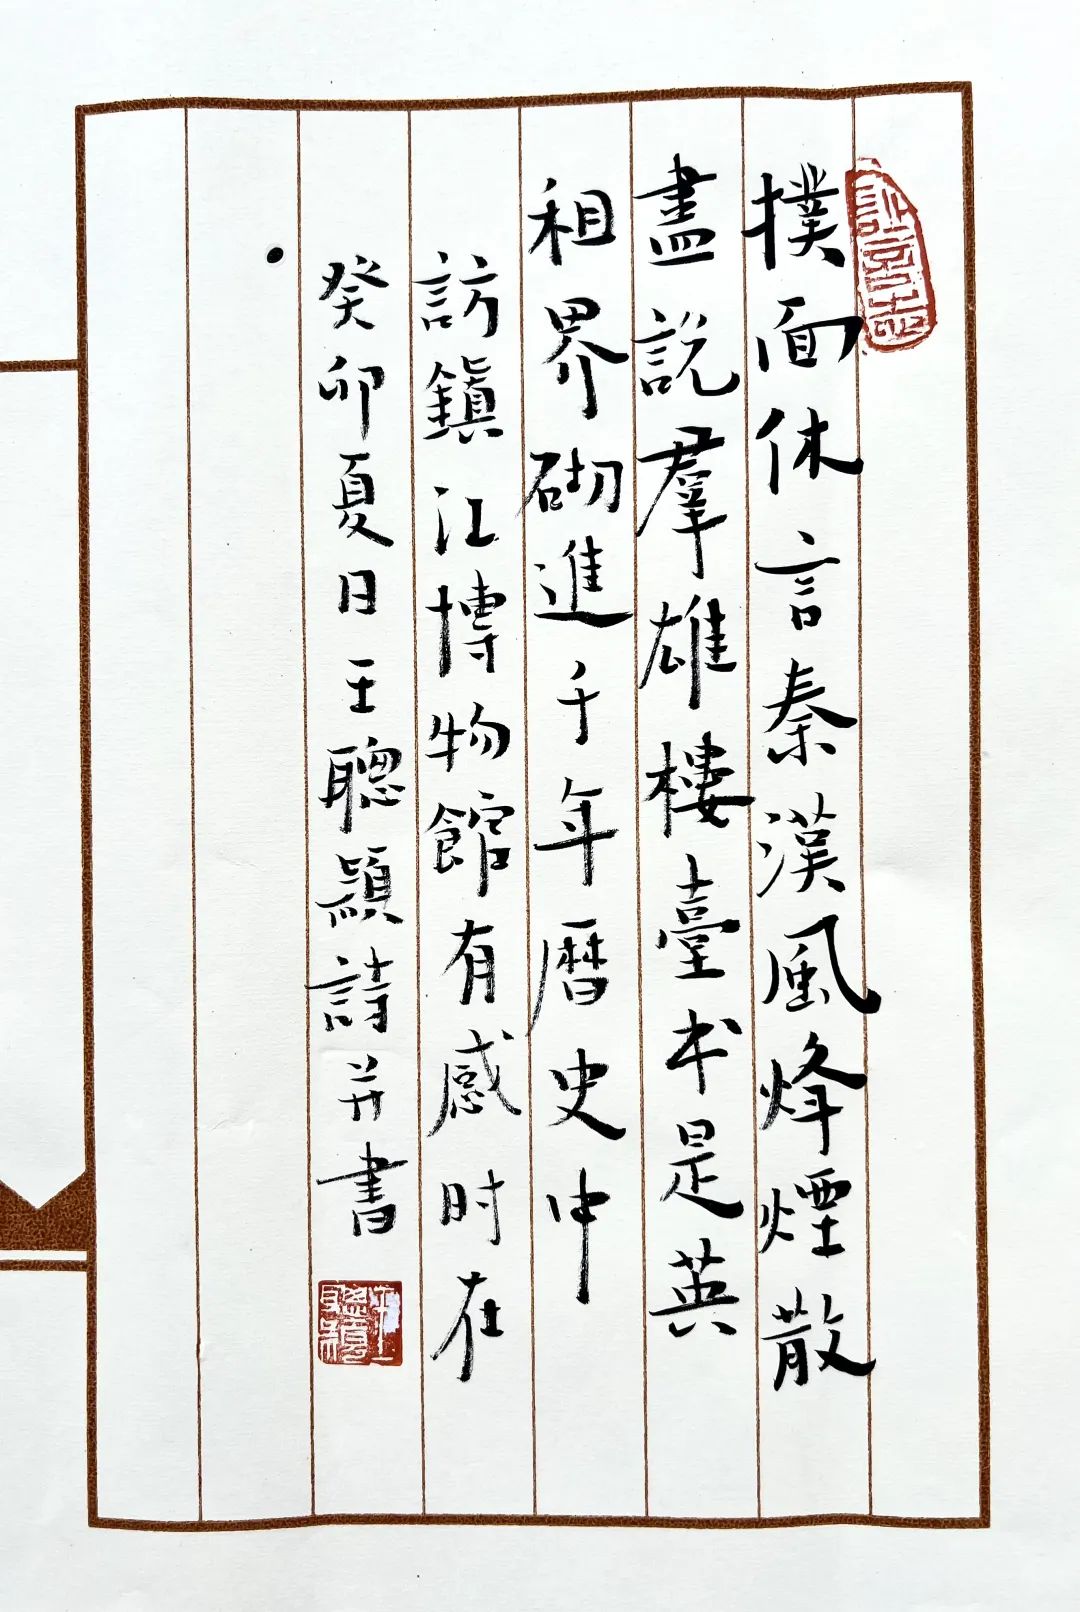 詩言志
撲面休言秦漢風烽煙散
盡說羣雄樓臺本是英
租界砌進千年曆史中
訪鎮江博物館有感时在
癸卯夏日王聰穎詩并書
王聰穎